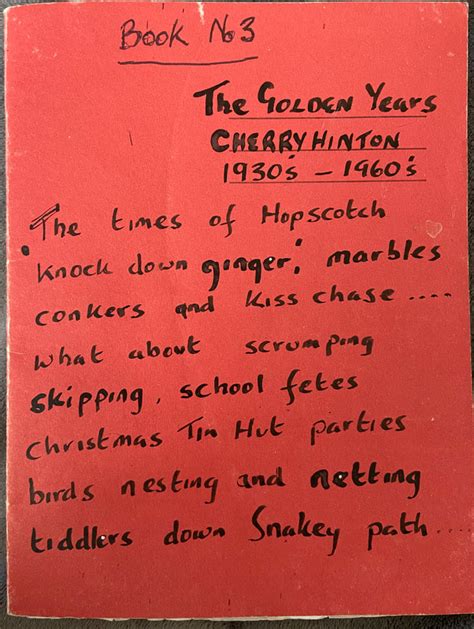 Book No 3
The Golden Years
CHERRYHINTON
1930's - 1960's
The times of Hopscotch
'Knock down ginger,' marbles
conkers and kiss chase .....
what about scrumping
skipping, school fetes
christmas Tin Hut parties
birds nesting and netting
tiddlers down Snakey path....